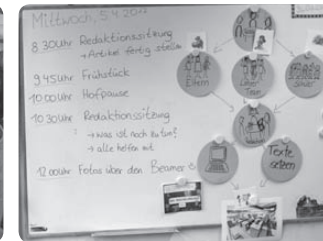 Mittwoch, 5.4.20
8.30Uhr Redaktionssitzung
→ Artikel fertig stellen
9.45Uhr Frühstück
10.00Uhr Hofpause
10.30Uhr Redaktionssitzung
→ was ist noch zu tun?
→ alle helfen mit
12.00Uhr Fotos über den Beamer
Eltern
Lehrer
Team
Kinder
Texte
setzen